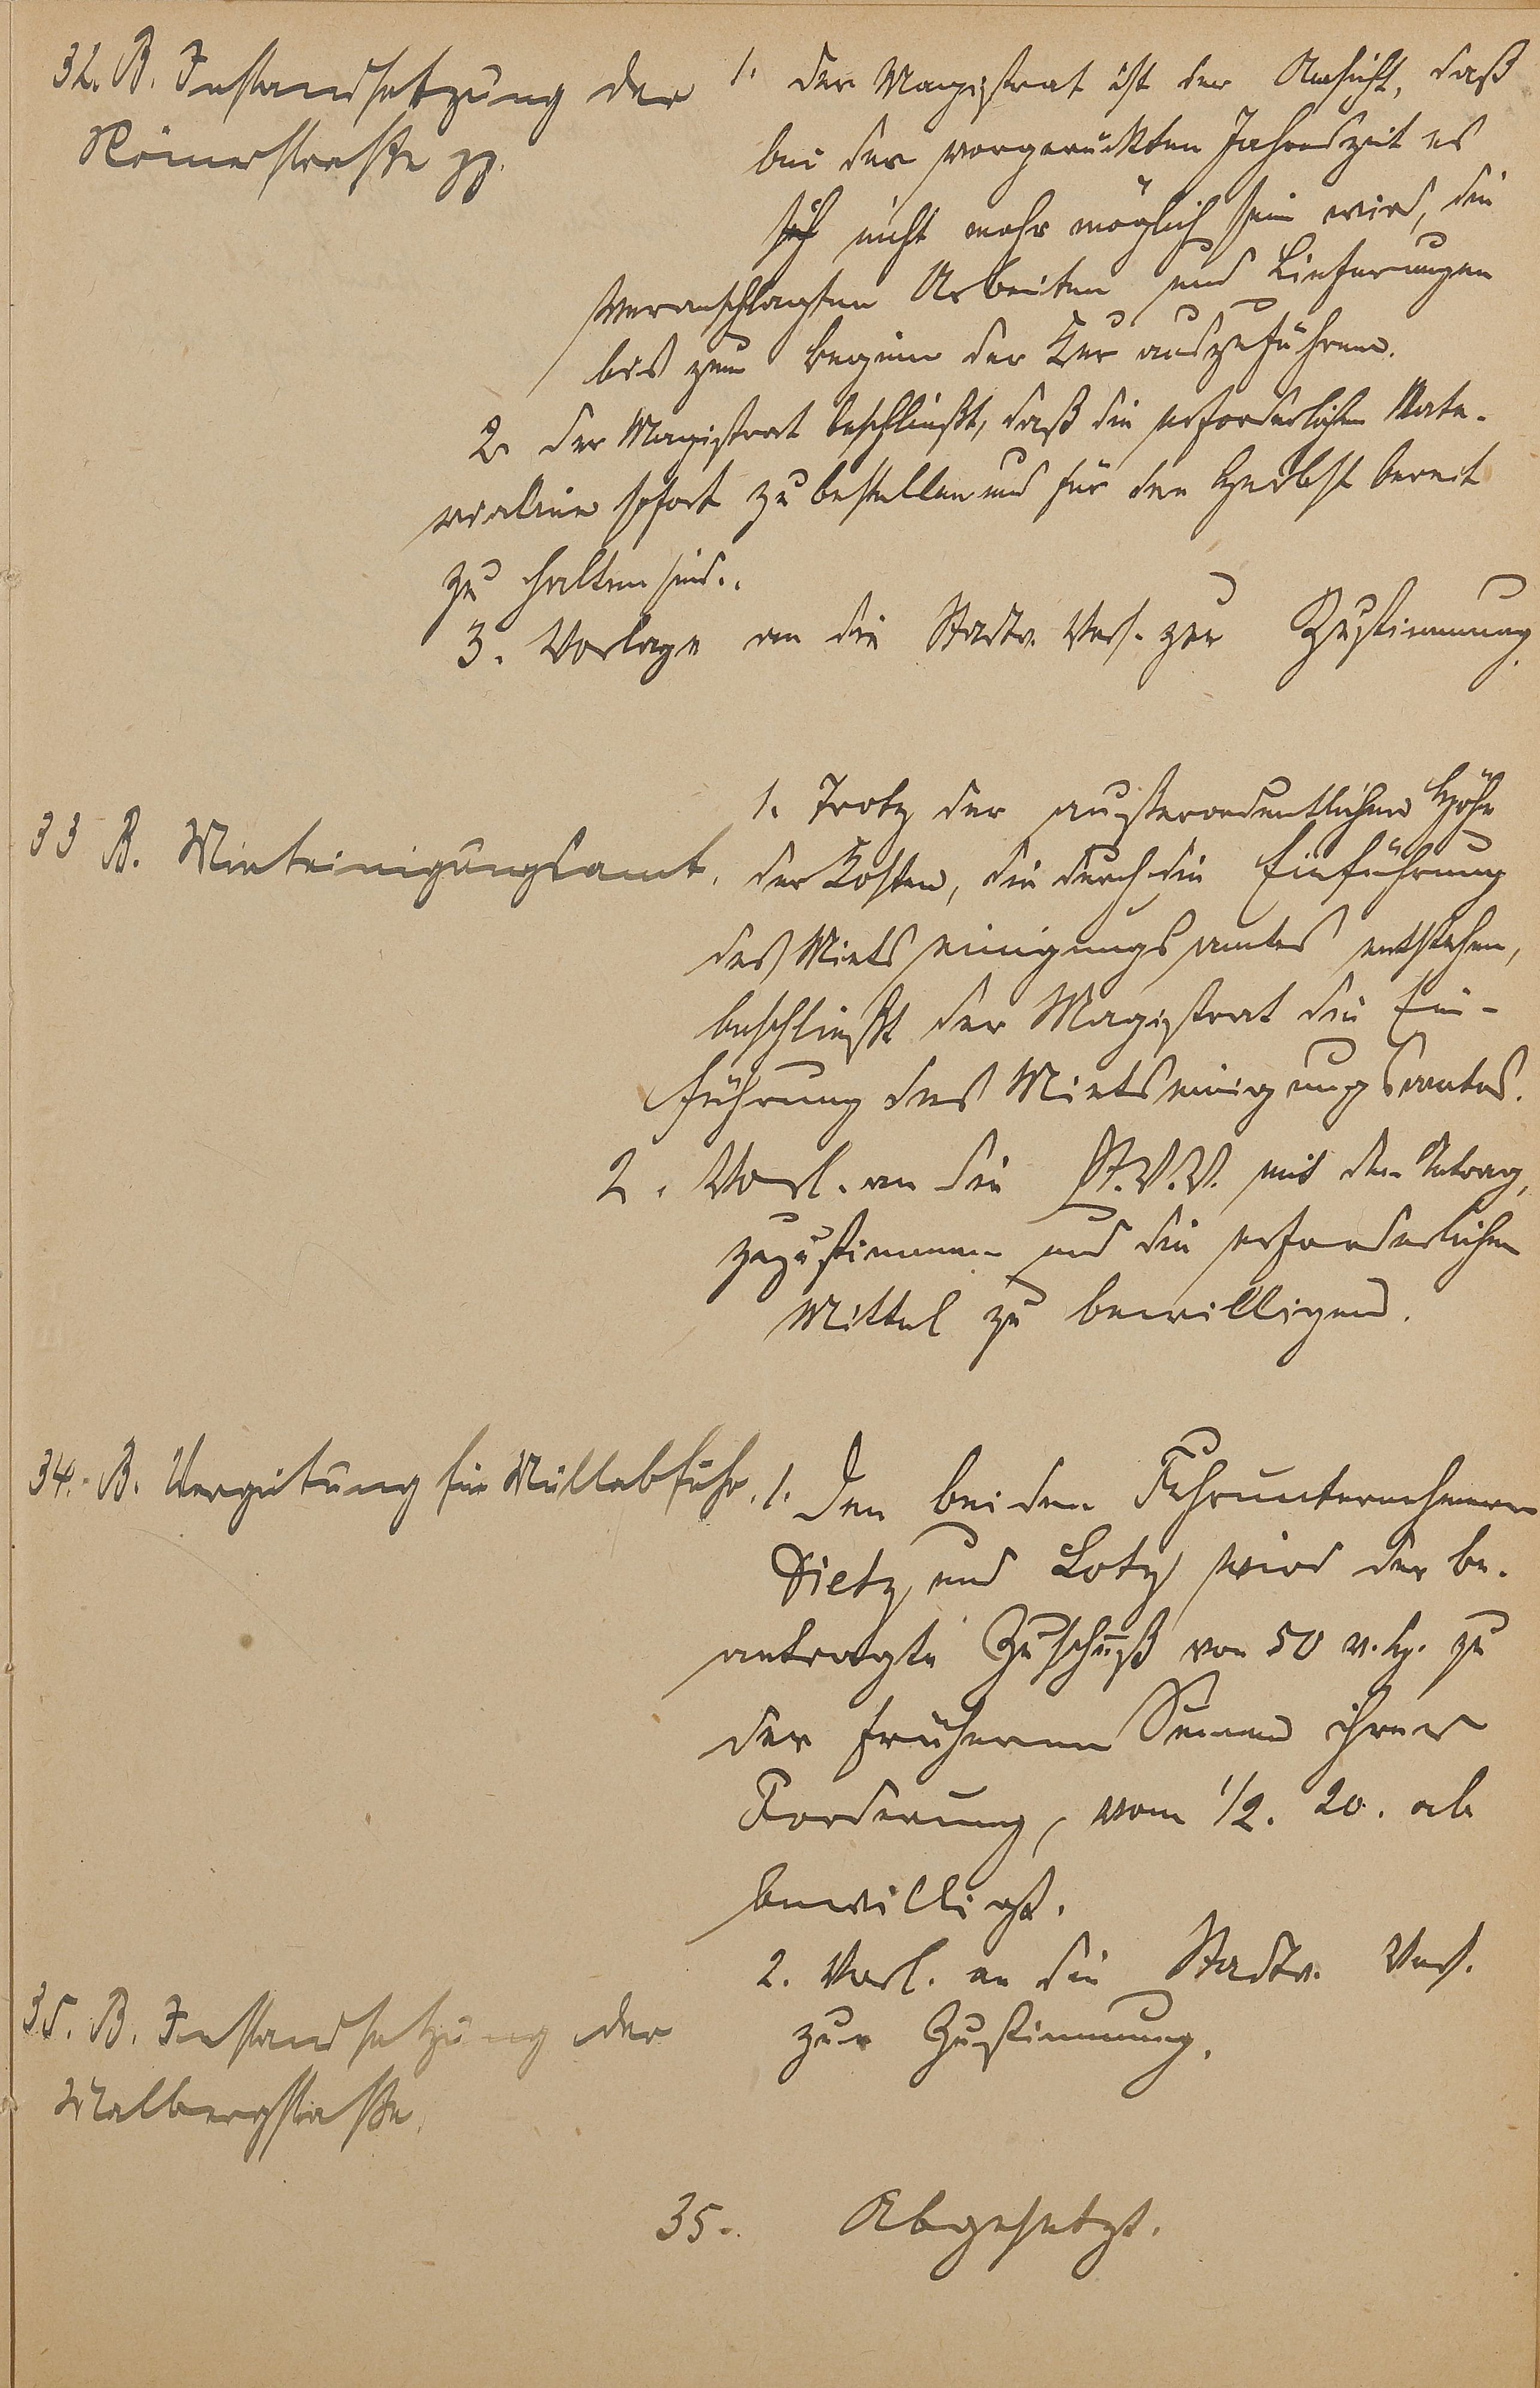 32. B. Instandsetzung der
Römerstraße pp.
1. Der Magistrat ist der Ansicht, daß
bei der vorgerückten Jahreszeit es
nicht mehr möglich sein wird, die
veranschlagten Arbeiten und Lieferungen
bis zum Beginn der Kur auszuführen.
2. Der Magistrat beschließt, daß die erforderlichen Mate-
rialien sofort zu bestellen und für den Herbst bereit
zu halten sind.
3. Vorlage an die Stadtv. Vers. zur Zustimmung.
33 B. Mieteinigungsamt.
1. Trotz der außerordentlichen Höhe
der Kosten, die durch die Einführung
des Mietseinigungsamtes entstehen,
beschließt der Magistrat die Ein-
führung des Mietseinigungsamtes.
2. Vorl. an die St.V.V. mit dem Antrag,
zuzustimmen und die erforderlichen
Mittel zu bewilligen.
34. B. Vergütung für Müllabfuhr.
1. Den beiden Fuhrunternehmern
Dietz und Lotz wird der be-
antragte Zuschuß von 50 v. H. zu
der früheren Summe ihrer
Forderung, vom 1/2. 20. ab
bewilligt.
2. Vorl. an die Stadtv. Vers.
zur Zustimmung.
35. B. Instandsetzung der
Malbergstraße.
35. Abgesetzt.